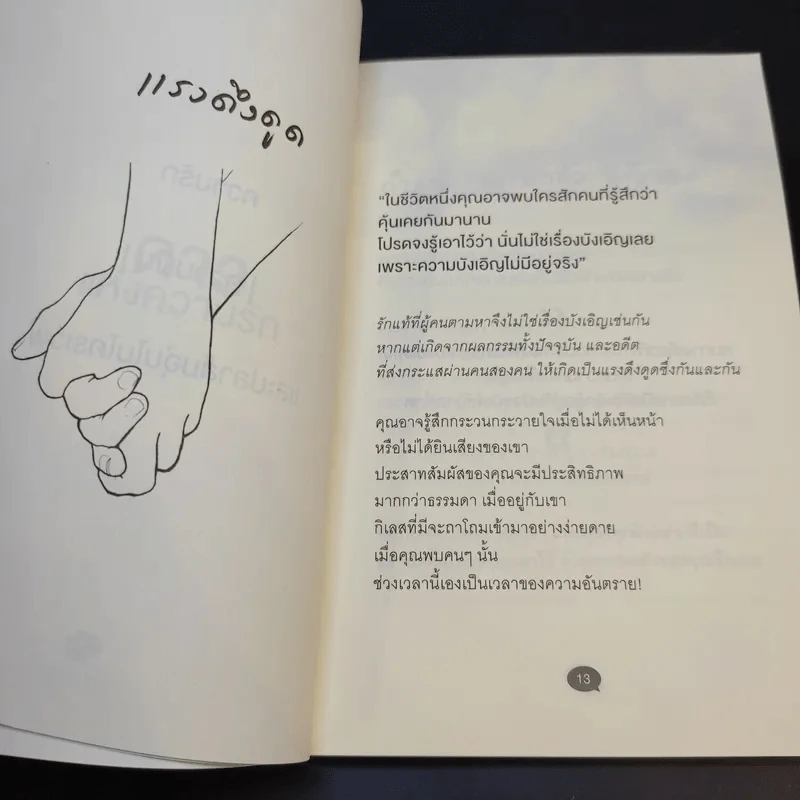 แรงดึงดูด
"ในชีวิตหนึ่งคุณอาจพบใครสักคนที่รู้สึกว่า
คุ้นเคยกันมานาน
โปรดจงรู้เอาไว้ว่า นั่นไม่ใช่เรื่องบังเอิญเลย
เพราะความบังเอิญไม่มีอยู่จริง"
รักแท้ที่ผู้คนตามหาจึงไม่ใช่เรื่องบังเอิญเช่นกัน
หากแต่เกิดจากผลกรรมทั้งปัจจุบัน และอดีต
ที่ส่งกระแสผ่านคนสองคน ให้เกิดเป็นแรงดึงดูดซึ่งกันและกัน
คุณอาจรู้สึกกระวนกระวายใจเมื่อไม่ได้เห็นหน้า
หรือไม่ได้ยินเสียงของเขา
ประสาทสัมผัสของคุณจะมีประสิทธิภาพ
มากกว่าธรรมดา เมื่ออยู่กับเขา
กิเลสที่มีจะถาโถมเข้ามาอย่างง่ายดาย
เมื่อคุณพบคนๆ นั้น
ช่วงเวลานี้เองเป็นเวลาของความอันตราย!
13